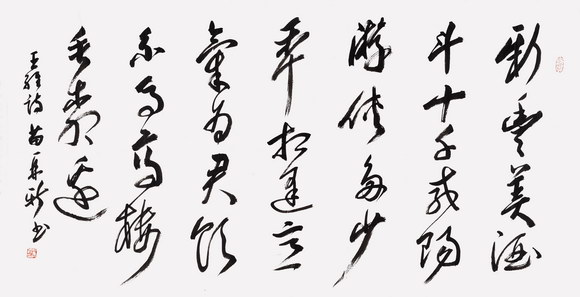 新豐美酒
斗十千咸陽
游俠多少
年相逢意
氣為君飲
系馬高樓
垂柳邊
王維詩 苗再新書